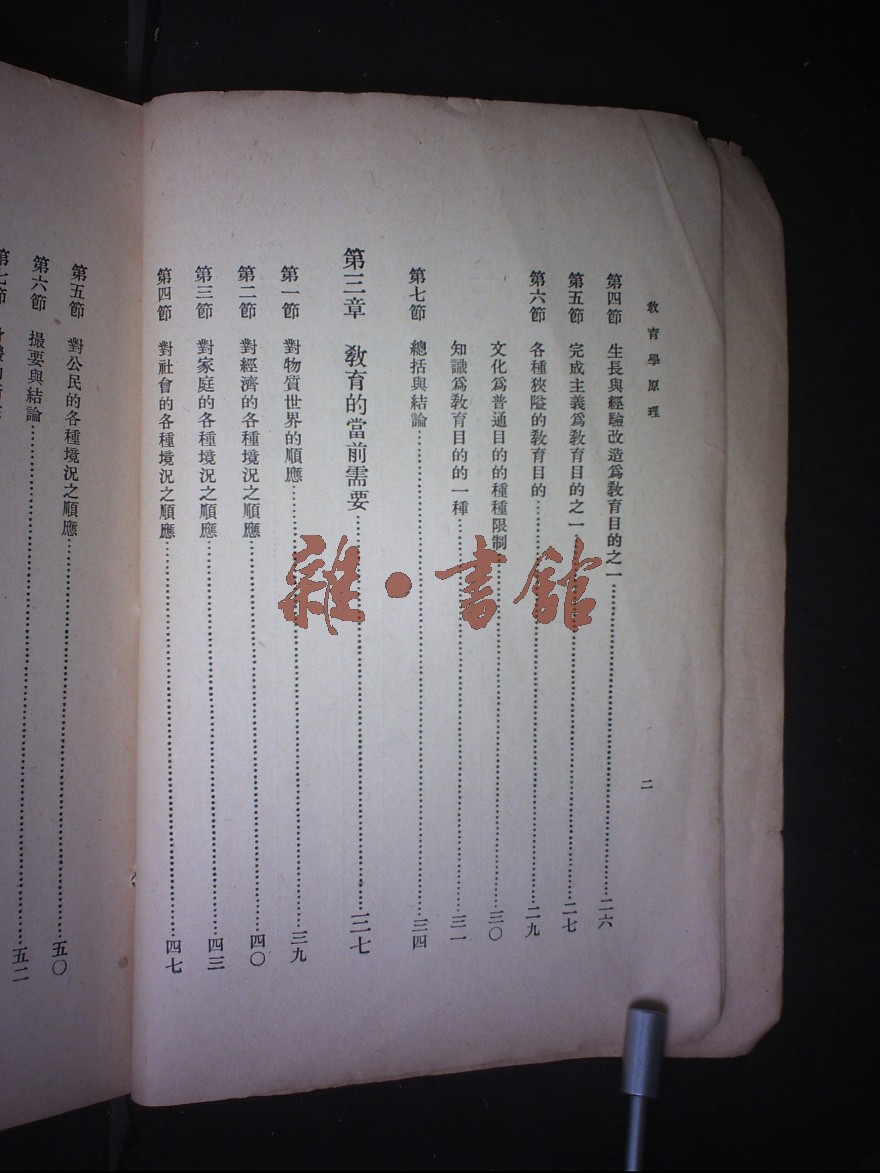 教育學原理
二
第四節 生長與經驗改造爲教育目的之一……二六
第五節 完成主義爲教育目的之一……二七
第六節 各種狹隘的教育目的……二九
文化爲普通目的的種種限制……三〇
知識爲教育目的的一種……三一
第七節 總括與結論……三四
第三章 教育的當前需要……三七
第一節 對物質世界的順應……三九
第二節 對經濟的各種境況之順應……四〇
第三節 對家庭的各種境況之順應……四三
第四節 對社會的各種境況之順應……四七
第五節 對公民的各種境況之順應……五〇
第六節 撮要與結論……五二
第七節
雜·書館